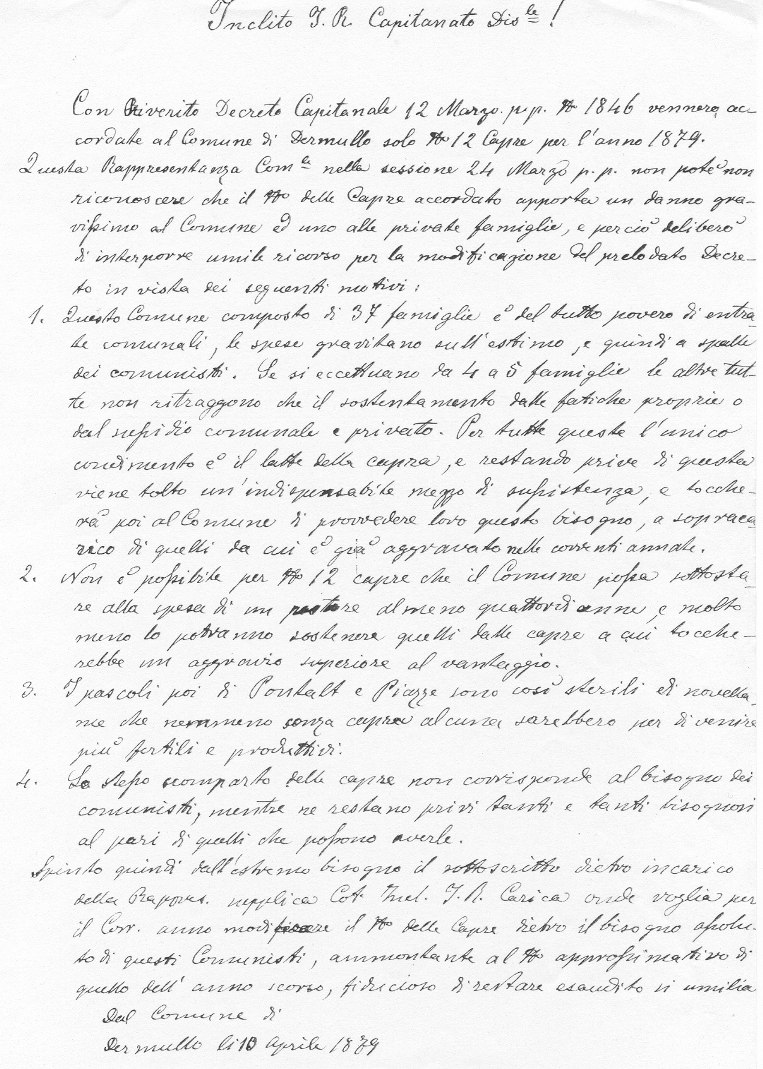 Inclito I. R. Capitanato Disle!
Con Riverito Decreto Capitanale 12 Marzo p.p. No 1846 vennero ac-
cordate al Comune di Dermullo solo No 12 Capre per l'anno 1879.
Questa Rappresentanza Comle nella sessione 24 Marzo p.p. non potè non
riconoscere che il No delle Capre accordato apporta un danno gra-
vissimo al Comune ed uno alle private famiglie, e perciò deliberò
di interporre umile ricorso per la modificazione del prelodato Decre-
to in vista dei seguenti motivi:
1. Questo Comune composto di 37 famiglie è del tutto povero di entra-
te comunali, le spese gravitano sull'estimo, e quindi a spalle
dei comunisti. Se si eccettuano da 4 a 5 famiglie le altre tut-
te non ritraggono che il sostentamento dalle fatiche proprie o
dal sussidio comunale e privato. Per tutte queste l'unico
condimento è il latte della capra, e restando prive di questa
viene tolto un'indispensabile mezzo di sussistenza, e tocche-
rà poi al Comune di provvedere loro questo bisogno, a sopraca
rico di quelli da cui è già aggravato nelle correnti annate.
2. Non è possibile per No 12 capre che il Comune possa sottosta-
re alla spesa di un pastore almeno quattordicenne, e molto
meno lo potranno sostenere quelli dalle capre a cui tocche-
rebbe un aggravio superiore al vantaggio.
3. I pascoli poi di Pontalt e Piazze sono così sterili di novella-
me che nemmeno senza capra alcuna sarebbero per divenire
più fertili e produttivi.
4. Lo stesso scomparto delle capre non corrisponde al bisogno dei
comunisti, mentre ne restano privi tanti e tanti bisognosi
al pari di quelli che possono averle.
Spinto quindi dall'estremo bisogno il sottoscritto dietro incarico
della Rappres. supplica Cot. Incl. I. R. Carica onde voglia per
il Corr. anno modificare il No delle Capre dietro il bisogno assolu-
to di questi Comunisti, ammontante al No approssimativo di
quello dell'anno scorso, fiducioso di restare esaudito si umilia
Dal Comune di
Dermullo li 10 Aprile 1879